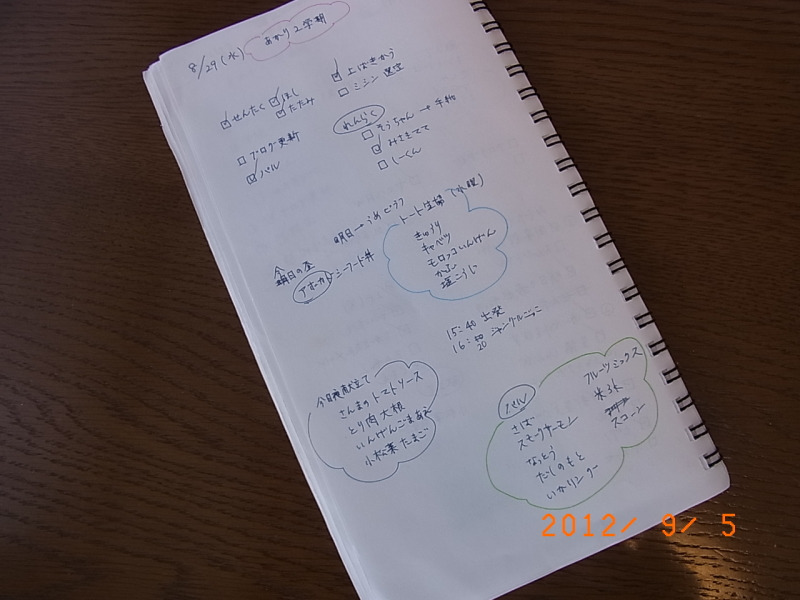 8/29(水) あかり2学期
☑せんたく ☑ほし
☑たたみ
☑上ばきかう
□ミシン
□ブログ更新
☑パル
れんらく
□そうちゃん→
☑みさきてて
□しーくん
明日→うめピラフ
今日の昼
アボカド・シーフード丼
トート生協(水曜)
きゅうり
キャベツ
モロッコいんげん
かぶ
塩こうじ
15:40 出発
16:20 ジャングル
今日夜献立て
さんまのトマトソース
とり肉大根
いんげんごまあえ
小松菜たまご
パル
さば
スモークサーモン
なっとう
だしのもと
いかリング
フルーツミックス
氷
スコーン
2012/ 9/ 5